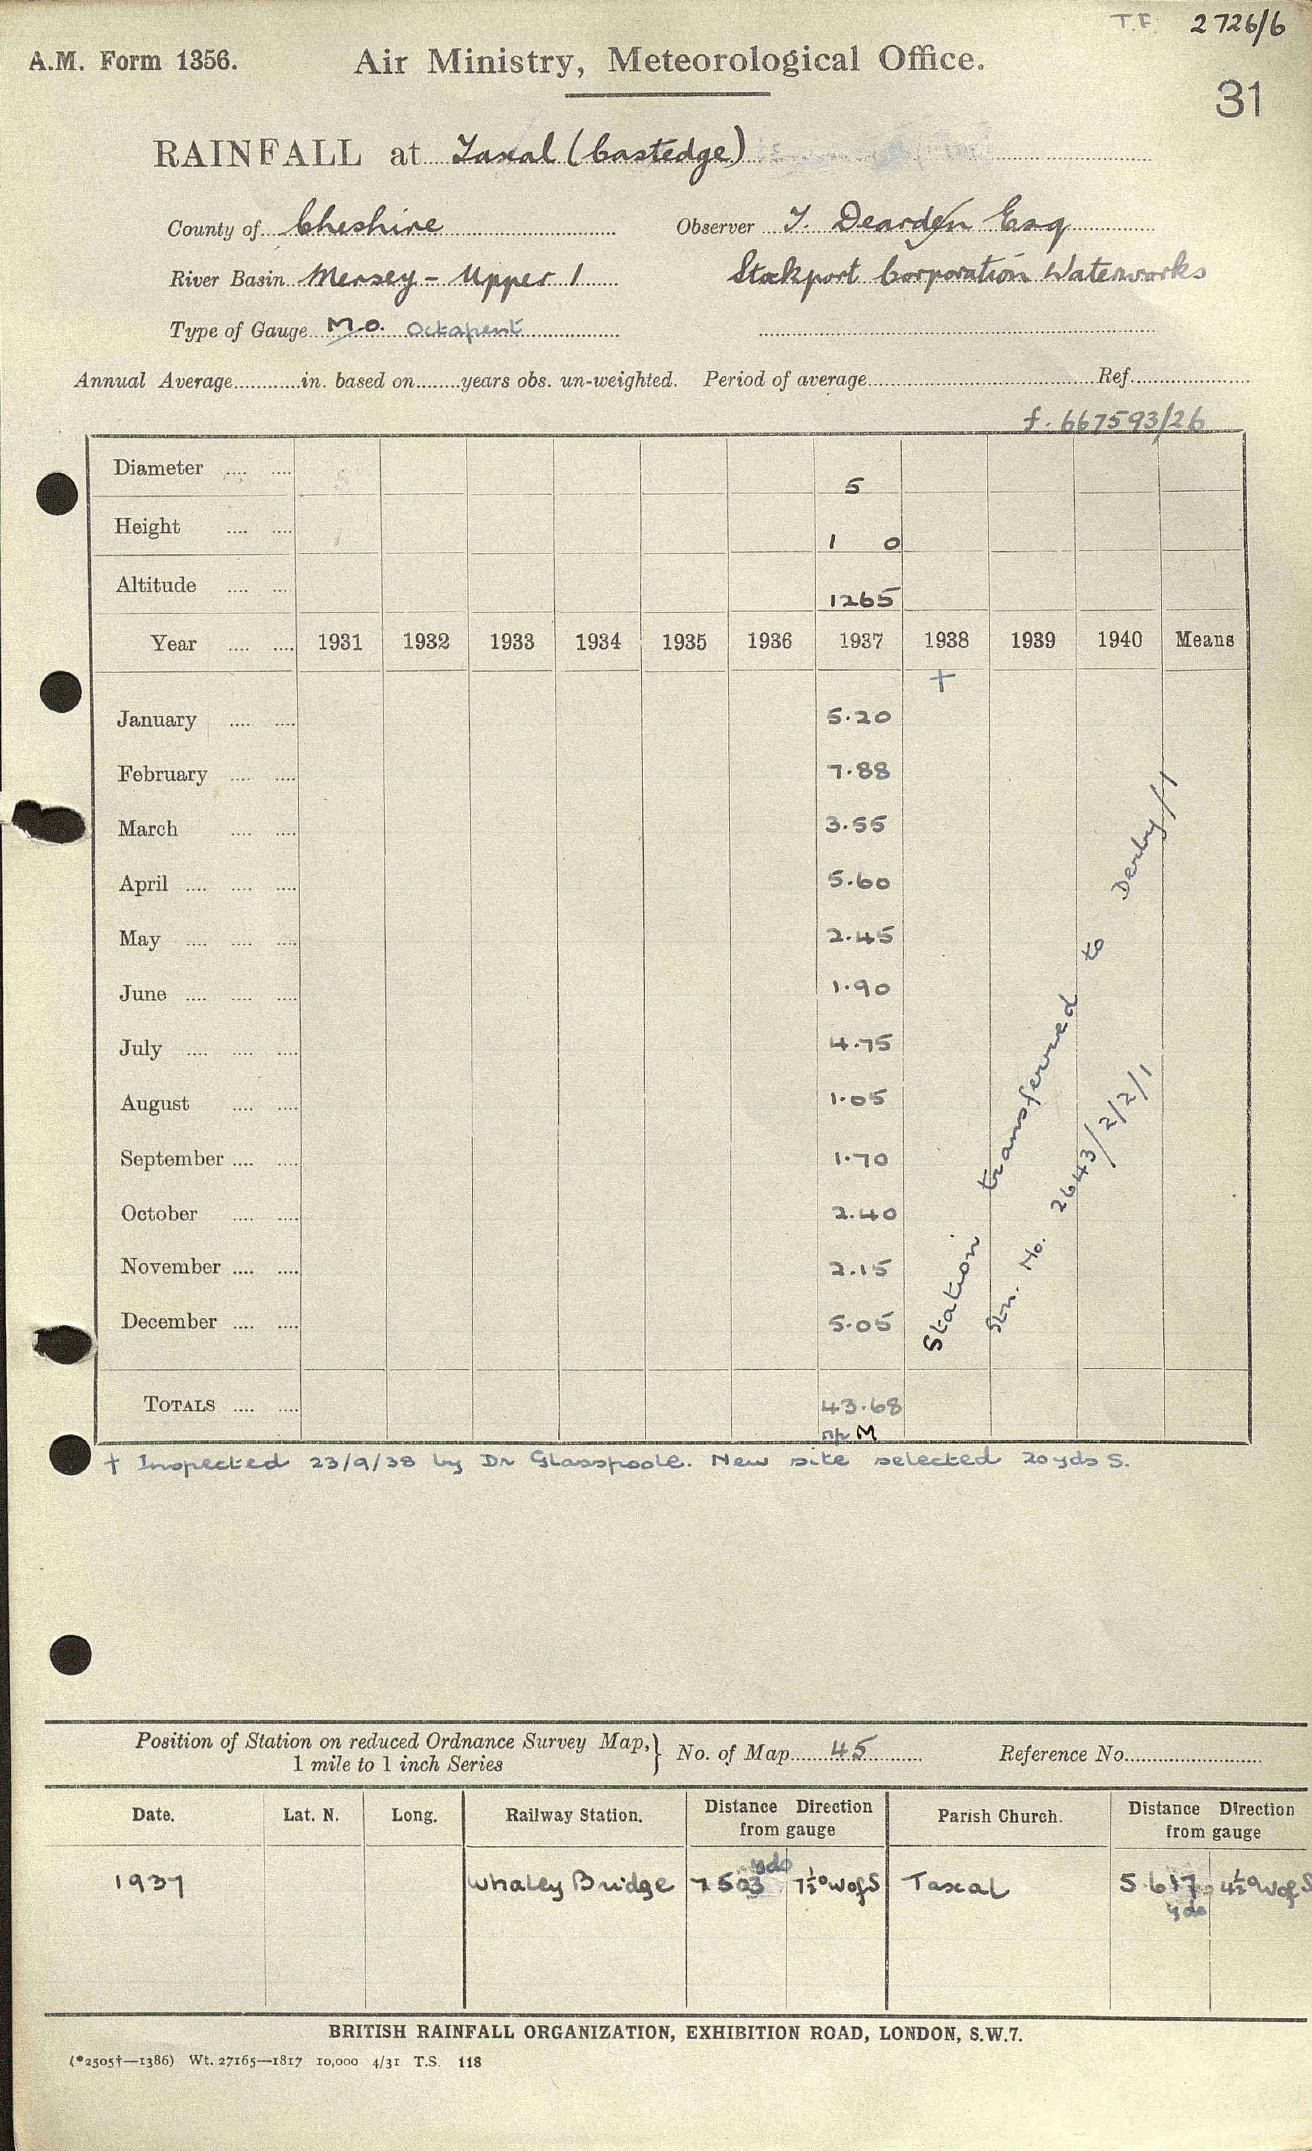 T.F. 2726/6
A.M. Form 1356. Air Ministry, Meteorological Office.
31
RAINFALL at Taxal (Castedge)
County of Cheshire Observer T. Dearden Esq
River Basin Mersey - Upper 1 Stockport Corporation Waterworks
Type of Gauge M.O. Octapent
Annual Average in. based on years obs. un-weighted. Period of average Ref.
f. 667593/26
Diameter 5
Height 1 0
Altitude 1265
Year 1931 1932 1933 1934 1935 1936 1937 1938 1939 1940 Means
+
January 5.20
February 7.88
March 3.55
April 5.60
May 2.45
June 1.90
July 4.75
August 1.05
September 1.70
October 2.40
November 2.15
December 5.05
Station transferred to Derby/1
Stn. No. 2643/2/2/1
TOTALS 43.68
M
† Inspected 23/9/38 by Dr Glasspoole. New site selected 20 yds S.
Position of Station on reduced Ordnance Survey Map, 1 mile to 1 inch Series } No. of Map 45 Reference No.
Date. Lat. N. Long. Railway Station. Distance Direction from gauge Parish Church. Distance Direction from gauge
1937 Whaley Bridge 7503 yds 7½° W of S Taxal 5617 yds 4½° W of S
BRITISH RAINFALL ORGANIZATION, EXHIBITION ROAD, LONDON, S.W.7.
(*2505†—1386) Wt. 27165—1817 10,000 4/31 T.S. 118